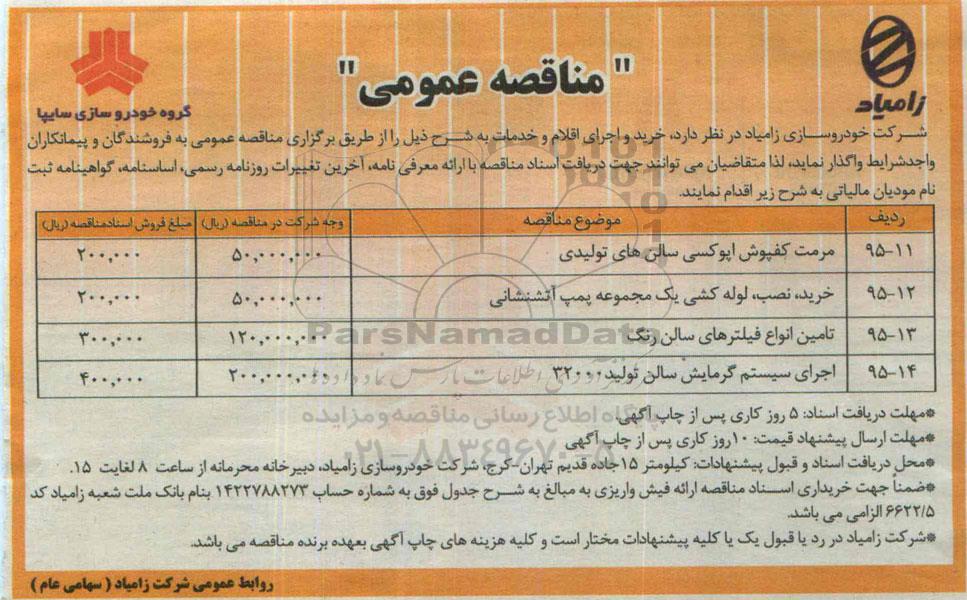 زامیاد
گروه خودروسازی سایپا
"مناقصه عمومی"
شرکت خودروسازی زامیاد در نظر دارد، خرید و اجرای اقلام و خدمات به شرح ذیل را از طریق برگزاری مناقصه عمومی به فروشندگان و پیمانکاران
واجدشرایط واگذار نماید، لذا متقاضیان می توانند جهت دریافت اسناد مناقصه با ارائه معرفی نامه، آخرین تغییرات روزنامه رسمی، اساسنامه، گواهینامه ثبت
نام مودیان مالیاتی به شرح زیر اقدام نمایند.
ردیف موضوع مناقصه وجه شرکت در مناقصه (ریال) مبلغ فروش اسنادمناقصه (ریال)
۹۵-۱۱ مرمت کفپوش اپوکسی سالن های تولیدی ۵۰,۰۰۰,۰۰۰ ۲۰۰,۰۰۰
۹۵-۱۲ خرید، نصب، لوله کشی یک مجموعه پمپ آتشنشانی ۵۰,۰۰۰,۰۰۰ ۲۰۰,۰۰۰
۹۵-۱۳ تامین انواع فیلترهای سالن رنگ ۱۲۰,۰۰۰,۰۰۰ ۳۰۰,۰۰۰
۹۵-۱۴ اجرای سیستم گرمایش سالن تولید ۳۲۰۰۰ ۲۰۰,۰۰۰,۰۰۰ ۴۰۰,۰۰۰
ParsNamadData
پایگاه اطلاع رسانی مناقصه و مزایده
۰۲۱-۸۸۳۴۹۶۷۰-۵
*مهلت دریافت اسناد: ۵ روز کاری پس از چاپ آگهی.
*مهلت ارسال پیشنهاد قیمت: ۱۰روز کاری پس از چاپ آگهی
*محل دریافت اسناد و قبول پیشنهادات: کیلومتر ۱۵جاده قدیم تهران-کرج، شرکت خودروسازی زامیاد، دبیرخانه محرمانه از ساعت ۸ لغایت ۱۵.
*ضمناً جهت خریداری اسناد مناقصه ارائه فیش واریزی به مبالغ به شرح جدول فوق به شماره حساب ۱۴۲۲۷۸۸۲۷۳ بنام بانک ملت شعبه زامیاد کد
۶۶۲۲/۵ الزامی می باشد.
*شرکت زامیاد در رد یا قبول یک یا کلیه پیشنهادات مختار است و کلیه هزینه های چاپ آگهی بعهده برنده مناقصه می باشد.
روابط عمومی شرکت زامیاد ( سهامی عام )